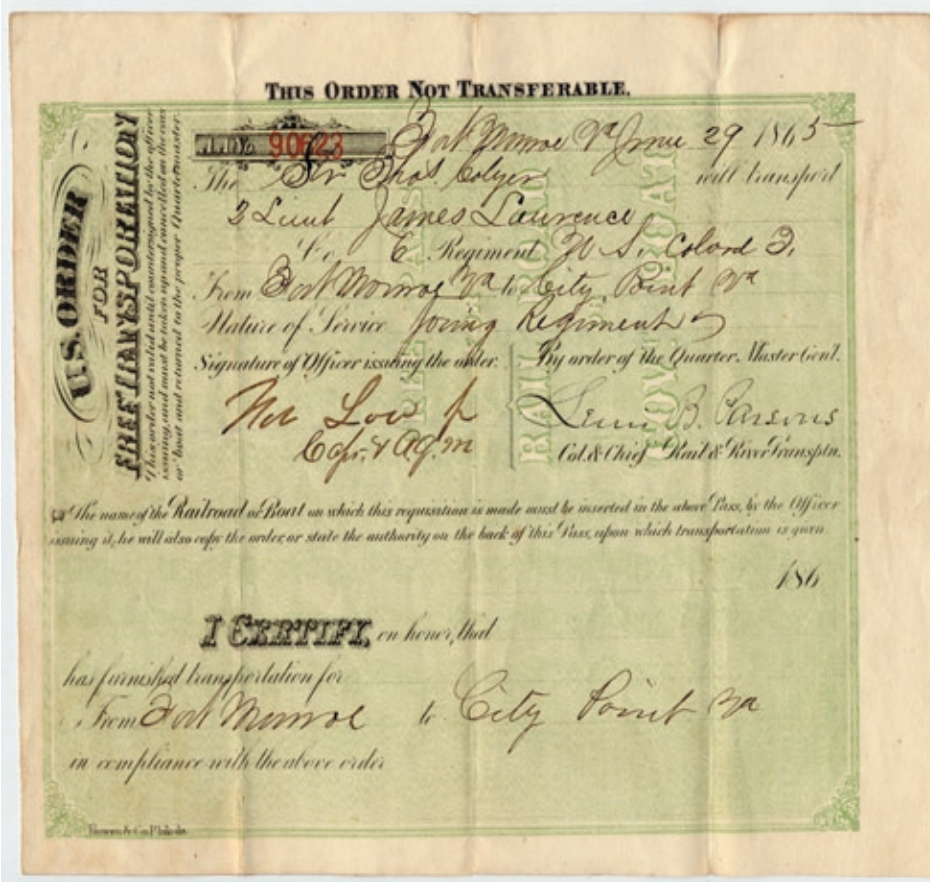 THIS ORDER NOT TRANSFERABLE.
U.S. ORDER
FOR
FREE TRANSPORTATION
This order not valid until countersigned by the officer
issuing, and must be taken up and cancelled on the cars
or boat and returned to the proper Quartermaster.
90623
Fort Monroe Va June 29 1865
The Str Thos. Colyer will transport
2 Lieut James Lawrence
Co. E Regiment U.S. Colored
From Fort Monroe Va to City Point Va
Nature of Service Joing Regiment
Signature of Officer issuing the order. By order of the Quarter Master Genl.
Low Lewis B. Parsons
Capt & AQM Col. & Chief Rail & River Transptn.
The name of the Railroad or Boat on which this requisition is made must be inserted in the above Pass, by the Officer
issuing it, he will also copy the order, or state the authority on the back of this Pass, upon which transportation is given.
186
I CERTIFY, on honor, that
has furnished transportation for
From Fort Monroe to City Point Va
in compliance with the above order
& Co. Philada.